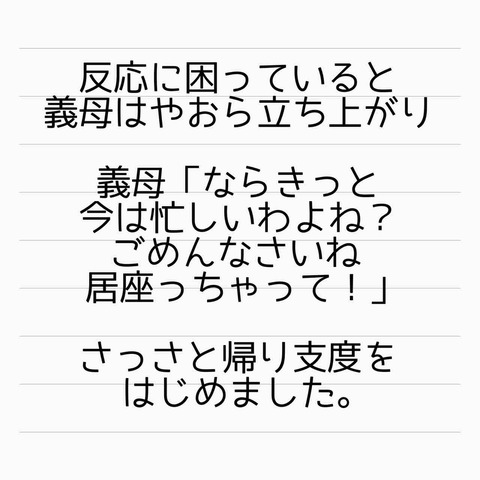 反応に困っていると
義母はやおら立ち上がり
義母「ならきっと
今は忙しいわよね？
ごめんなさいね
居座っちゃって！」
さっさと帰り支度を
はじめました。